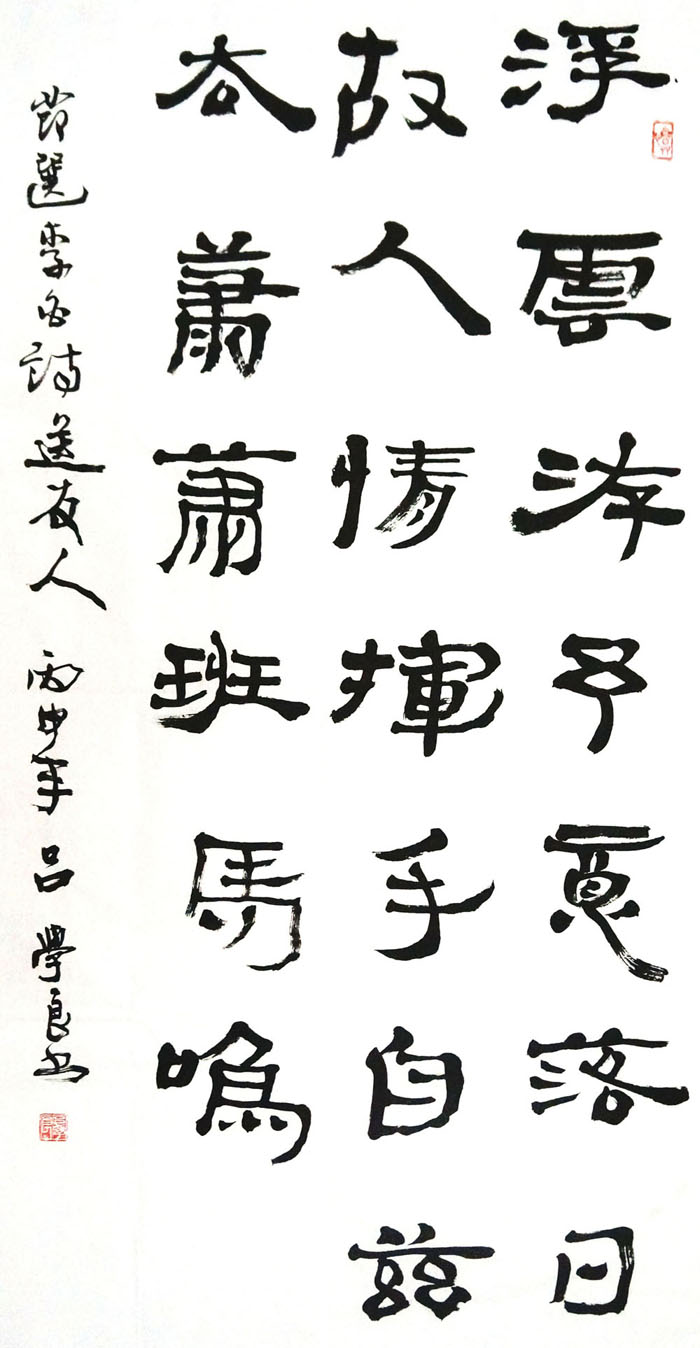 浮雲游子意落日
故人情揮手自兹
去蕭蕭班馬鳴
節選李白詩送友人 丙申年 吕學良書